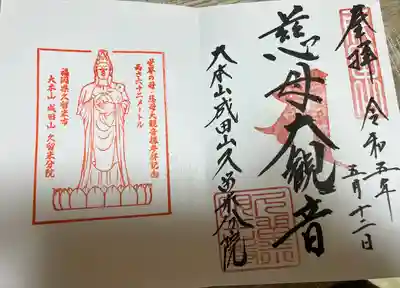 奉拝
令和五年
五月十二日
慈母大觀音
大本山成田山久留米分院
世界の母・慈母大観音様参拝記念
高さ六十二メートル
福岡県久留米市
大本山 成田山 久留米分院